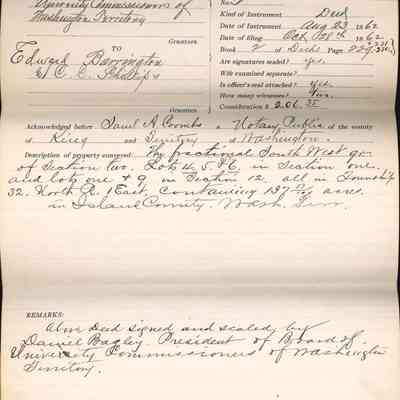 University Commissioners of
Washington Territory
Grantors
TO
Edward Barrington
& C. C. Phillips
Grantees
Kind of Instrument Deed
Date of Instrument Aug 23 1862
Date of filing Oct 28th 1862
Book 2 of Deeds Page 229
Are signatures sealed? yes.
Wife examined separate?
Is officer's seal attached? yes.
How many witnesses? Two.
Consideration $ 206.25
Acknowledged before Saml A Coombs a Notary Public of the county
of King and Territory of Washington.
Description of property conveyed: The fractional South West qr
of Section two. Lots 4, 5 & 6. in Section one.
and lots one & 9 in Section 12. all in Township
32. North R. 1 East, containing 137 acres.
in Island County. Wash. Terr.
REMARKS:
Above deed signed and sealed by
Daniel Bagley. President of Board of
University Commissioners of Washington
Territory.